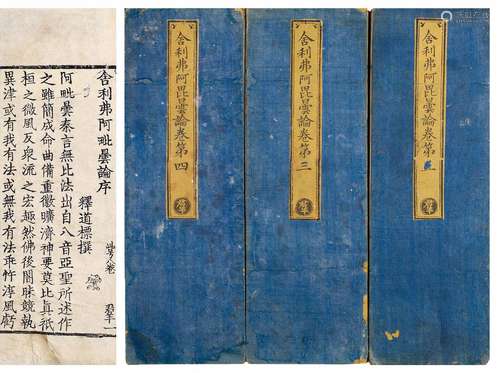 舍利弗阿毘曇論卷第
羣
舍利弗阿毘曇論卷第三
羣
舍利弗阿毘曇論卷第四
羣
舍利弗阿毗曇論序
釋道標撰
阿毗曇秦言無比法出自八音亞聖所述作
之雖簡成命曲備重徽曠濟神要莫比真祇
桓之微風反衆流之宏趣然佛後闇昧競執
異津或有我有法或無我有法乖忤淳風虧